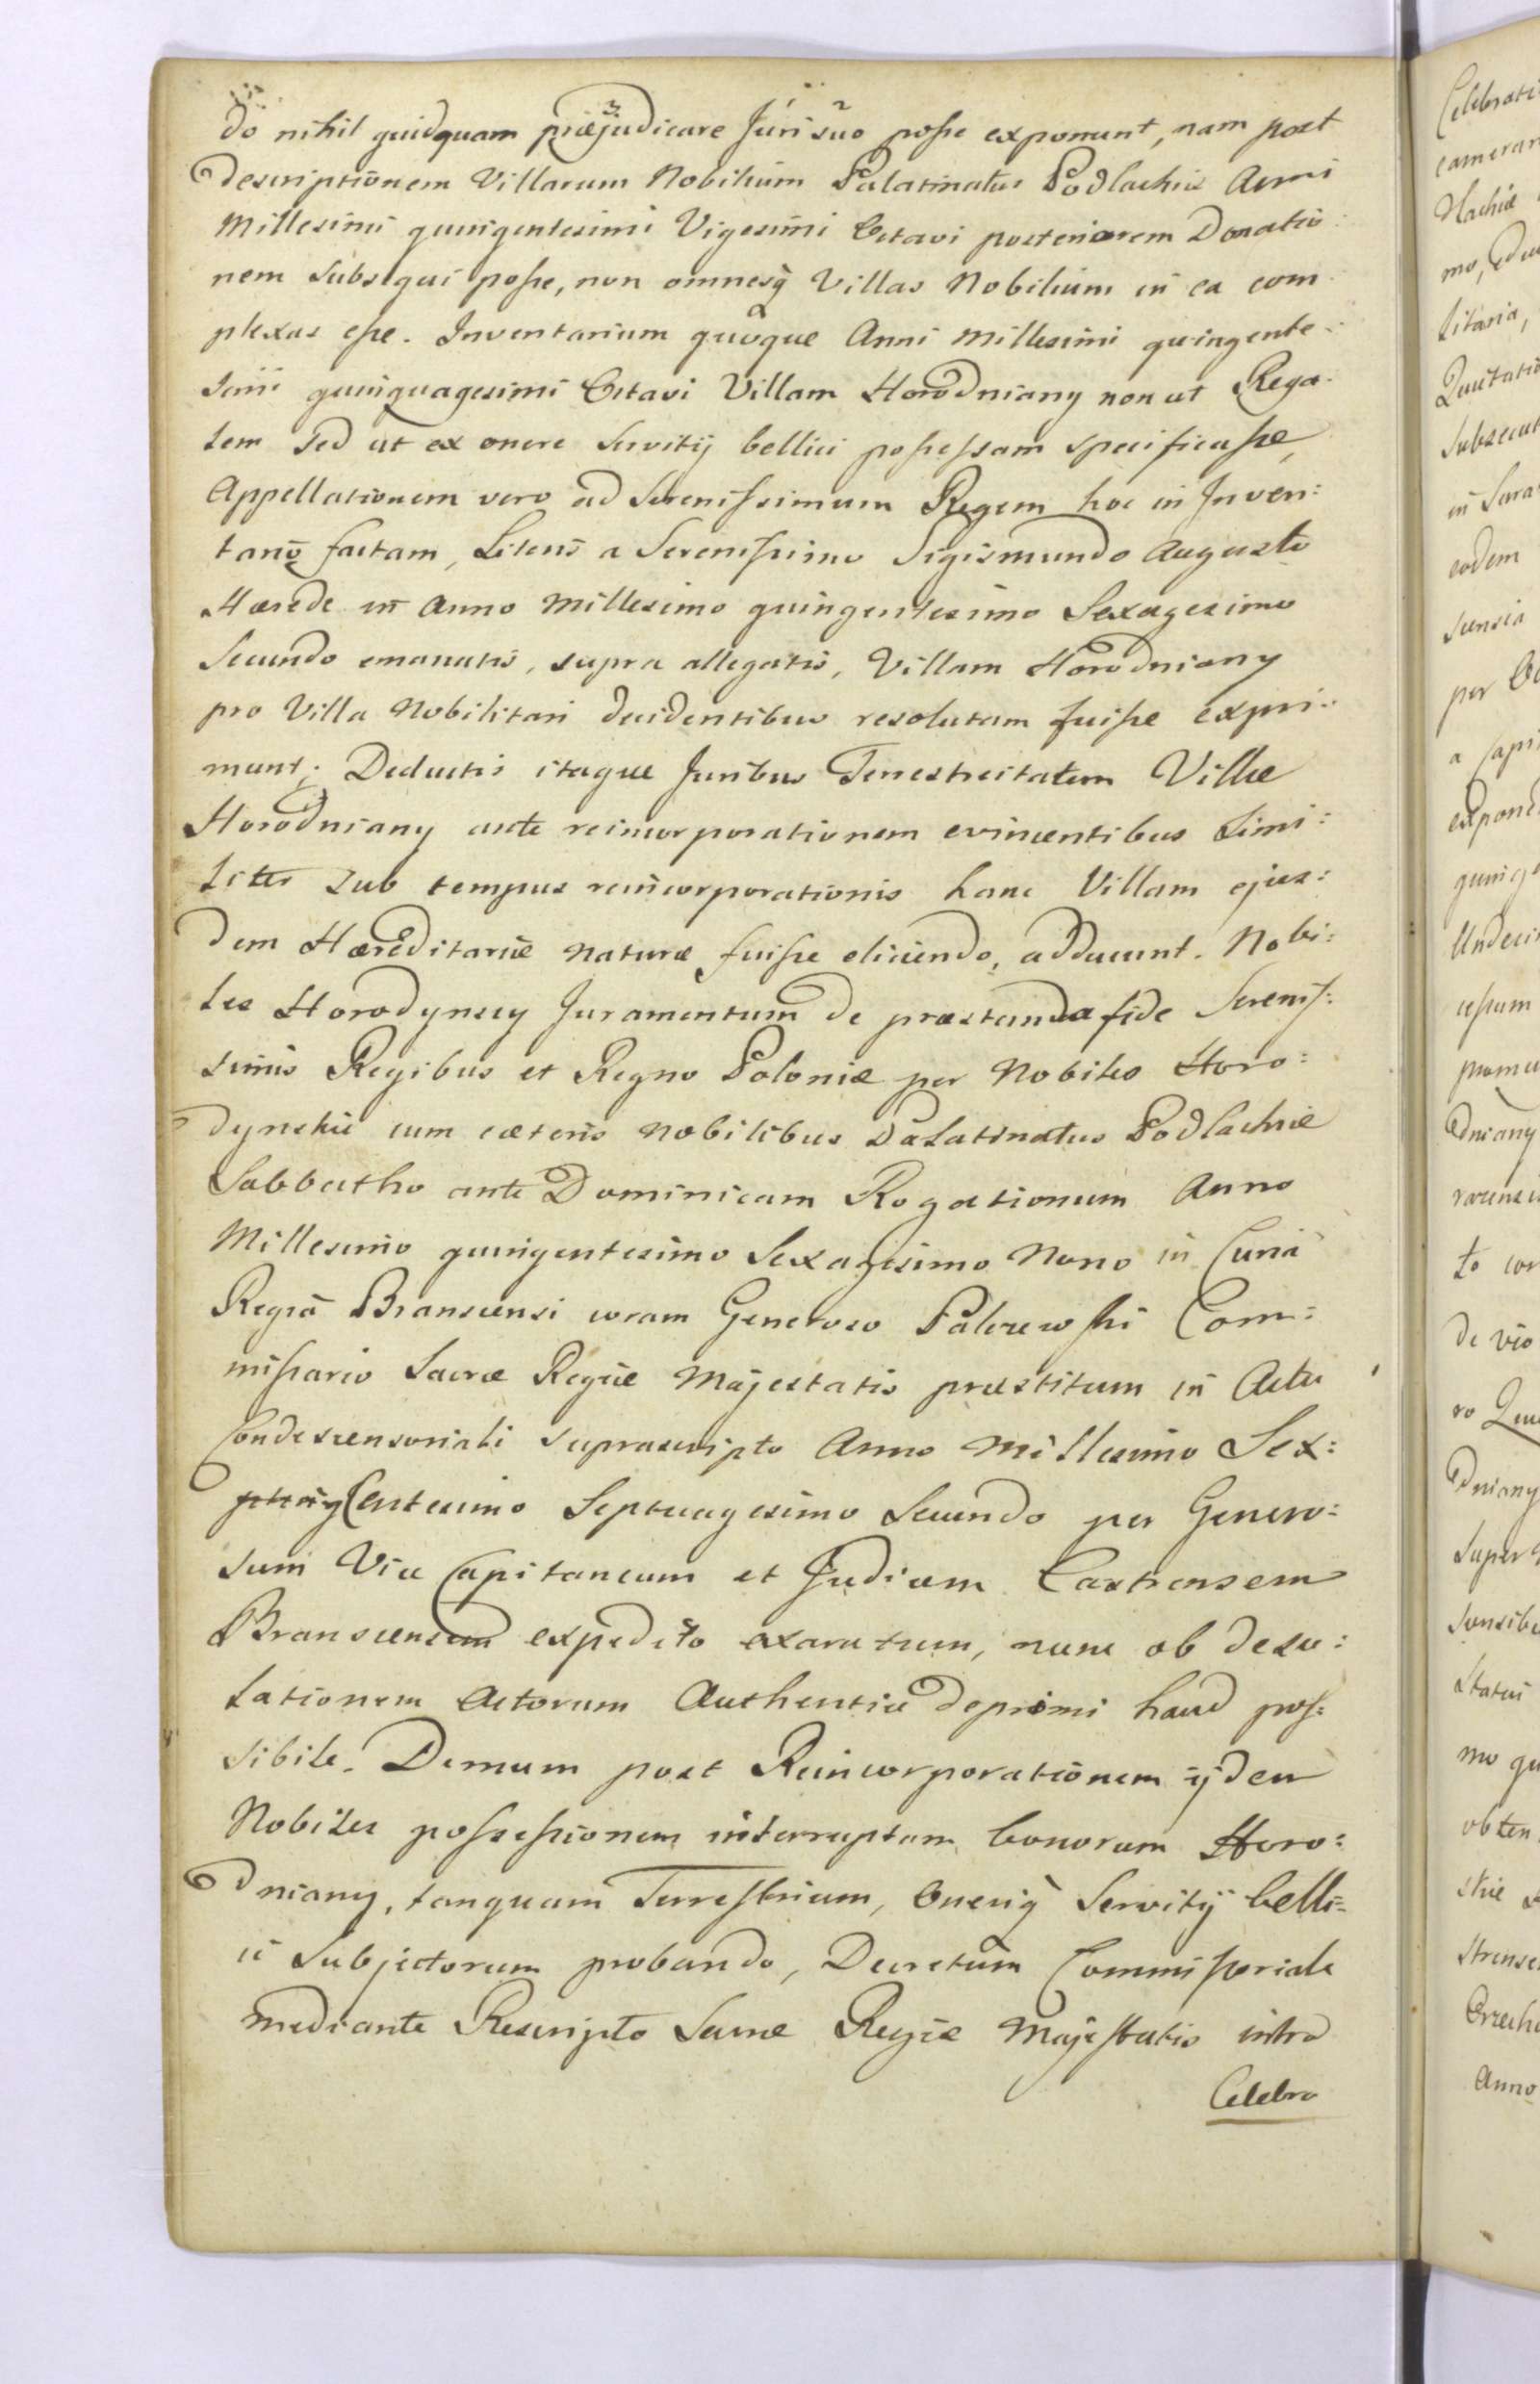 do nihil quidquam præjudicare Juri suo posse exponunt, nam post
descriptionem Villarum Nobilium Palatinatus Podlachiæ Anni
Millesimi quingentesimi Vigesimi Octavi posteriorem Donatio:
nem subsequi posse, non omnesq̀ Villas Nobilium in ea com
plexas esse. Inventarium quoque Anni Millesimi quingente:
simi quinquagesimi Octavi Villam Horodniany non ut Rega:
lem sed ut ex onere Servitij bellici possessam specificasse,
Appellationem vero ad Serenissimum Regem hoc in Inven:
tario factam, Literis a Serenissimo Sigismundo Augusto
Hærede in Anno Millesimo quingentesimo Sexagesimo
Secundo emanatis, supra allegatis, Villam Horodniany
pro Villa Nobilitari decidentibus resolutam fuisse expri:
munt; Deductis itaque Juribus Terrestreitatem Villæ
Horodniany ante reincorporationem evincentibus Simi:
liter sub tempus reincorporationis hanc Villam ejus:
dem Hæreditariæ naturæ fuisse eliciendo, adducunt. Nobi:
les Horodynscy Juramentum de præstanda fide Sereniss:
simis Regibus et Regno Poloniæ per Nobiles Horo:
dynskie cum cæteris Nobilibus Palatinatus Podlachiæ
Sabbatho ante Dominicam Rogationum Anno
Millesimo quingentesimo Sexagesimo Nono in Curia
Regia Branscensi coram Generoso Palczewski Com:
missario Sacræ Regiæ Majestatis præstitum in Actu
Condescensoriali suprascripto Anno Millesimo Sex:
Centesimo Septuagesimo Secundo per Genero:
sum Vice Capitaneum et Judicem Castrensem
Branscensem expedito exaratum, nunc ob deso:
lationem Actorum Authentice depromi haud pos:
sibile. Demum post Reincorporationem ijdem
Nobiles possessionem interruptam bonorum Horo:
dniany, tanquam Terrestrium, Oneriq̀ Servitij belli:
ci Subjectorum probando, Decretum Commissoriale
mediante Rescripto Sacræ Regiæ Majestatis intra
Celebra